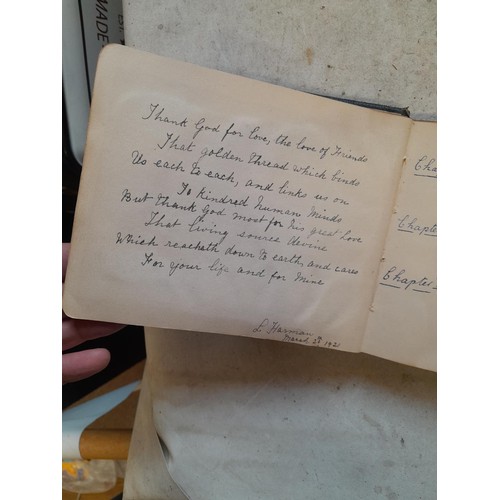 MADE
Thank God for love, the love of Friends
That golden thread which binds
Us each to each, and links us on
To kindred human minds
But thank God most for his great love
That living source devine
Which reacheth down to earth, and cares
For your life and for mine
L Harman
March 1921
Cha
Chapter
Chapter